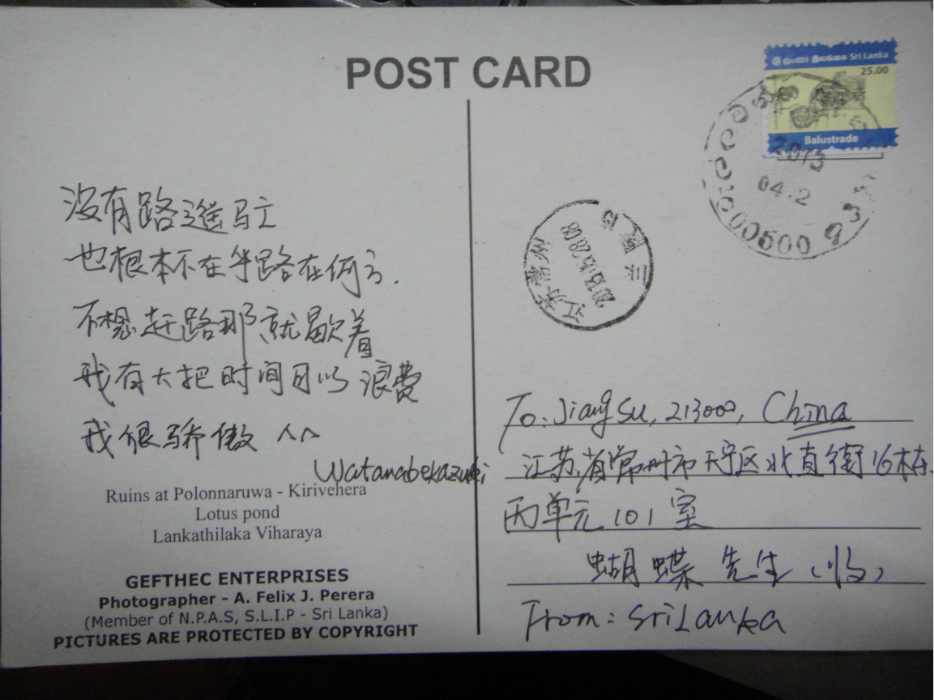 POST CARD
Sri Lanka
25.00
Balustrade
2013
04.2
00600
江苏常州
没有路遥
也根本不在乎路在何方.
不想赶路那就歇着
我有大把时间可以浪费
我很骄傲 ^^
Watanabekazuki
Ruins at Polonnaruwa - Kirivehera
Lotus pond
Lankathilaka Viharaya
GEFTHEC ENTERPRISES
Photographer - A. Felix J. Perera
(Member of N.P.A.S, S.L.I.P - Sri Lanka)
PICTURES ARE PROTECTED BY COPYRIGHT
To: Jiang Su, 213000, China
江苏省常州市天宁区北直街16栋
丙单元101室
蝴蝶先生(收)
From: Sri Lanka